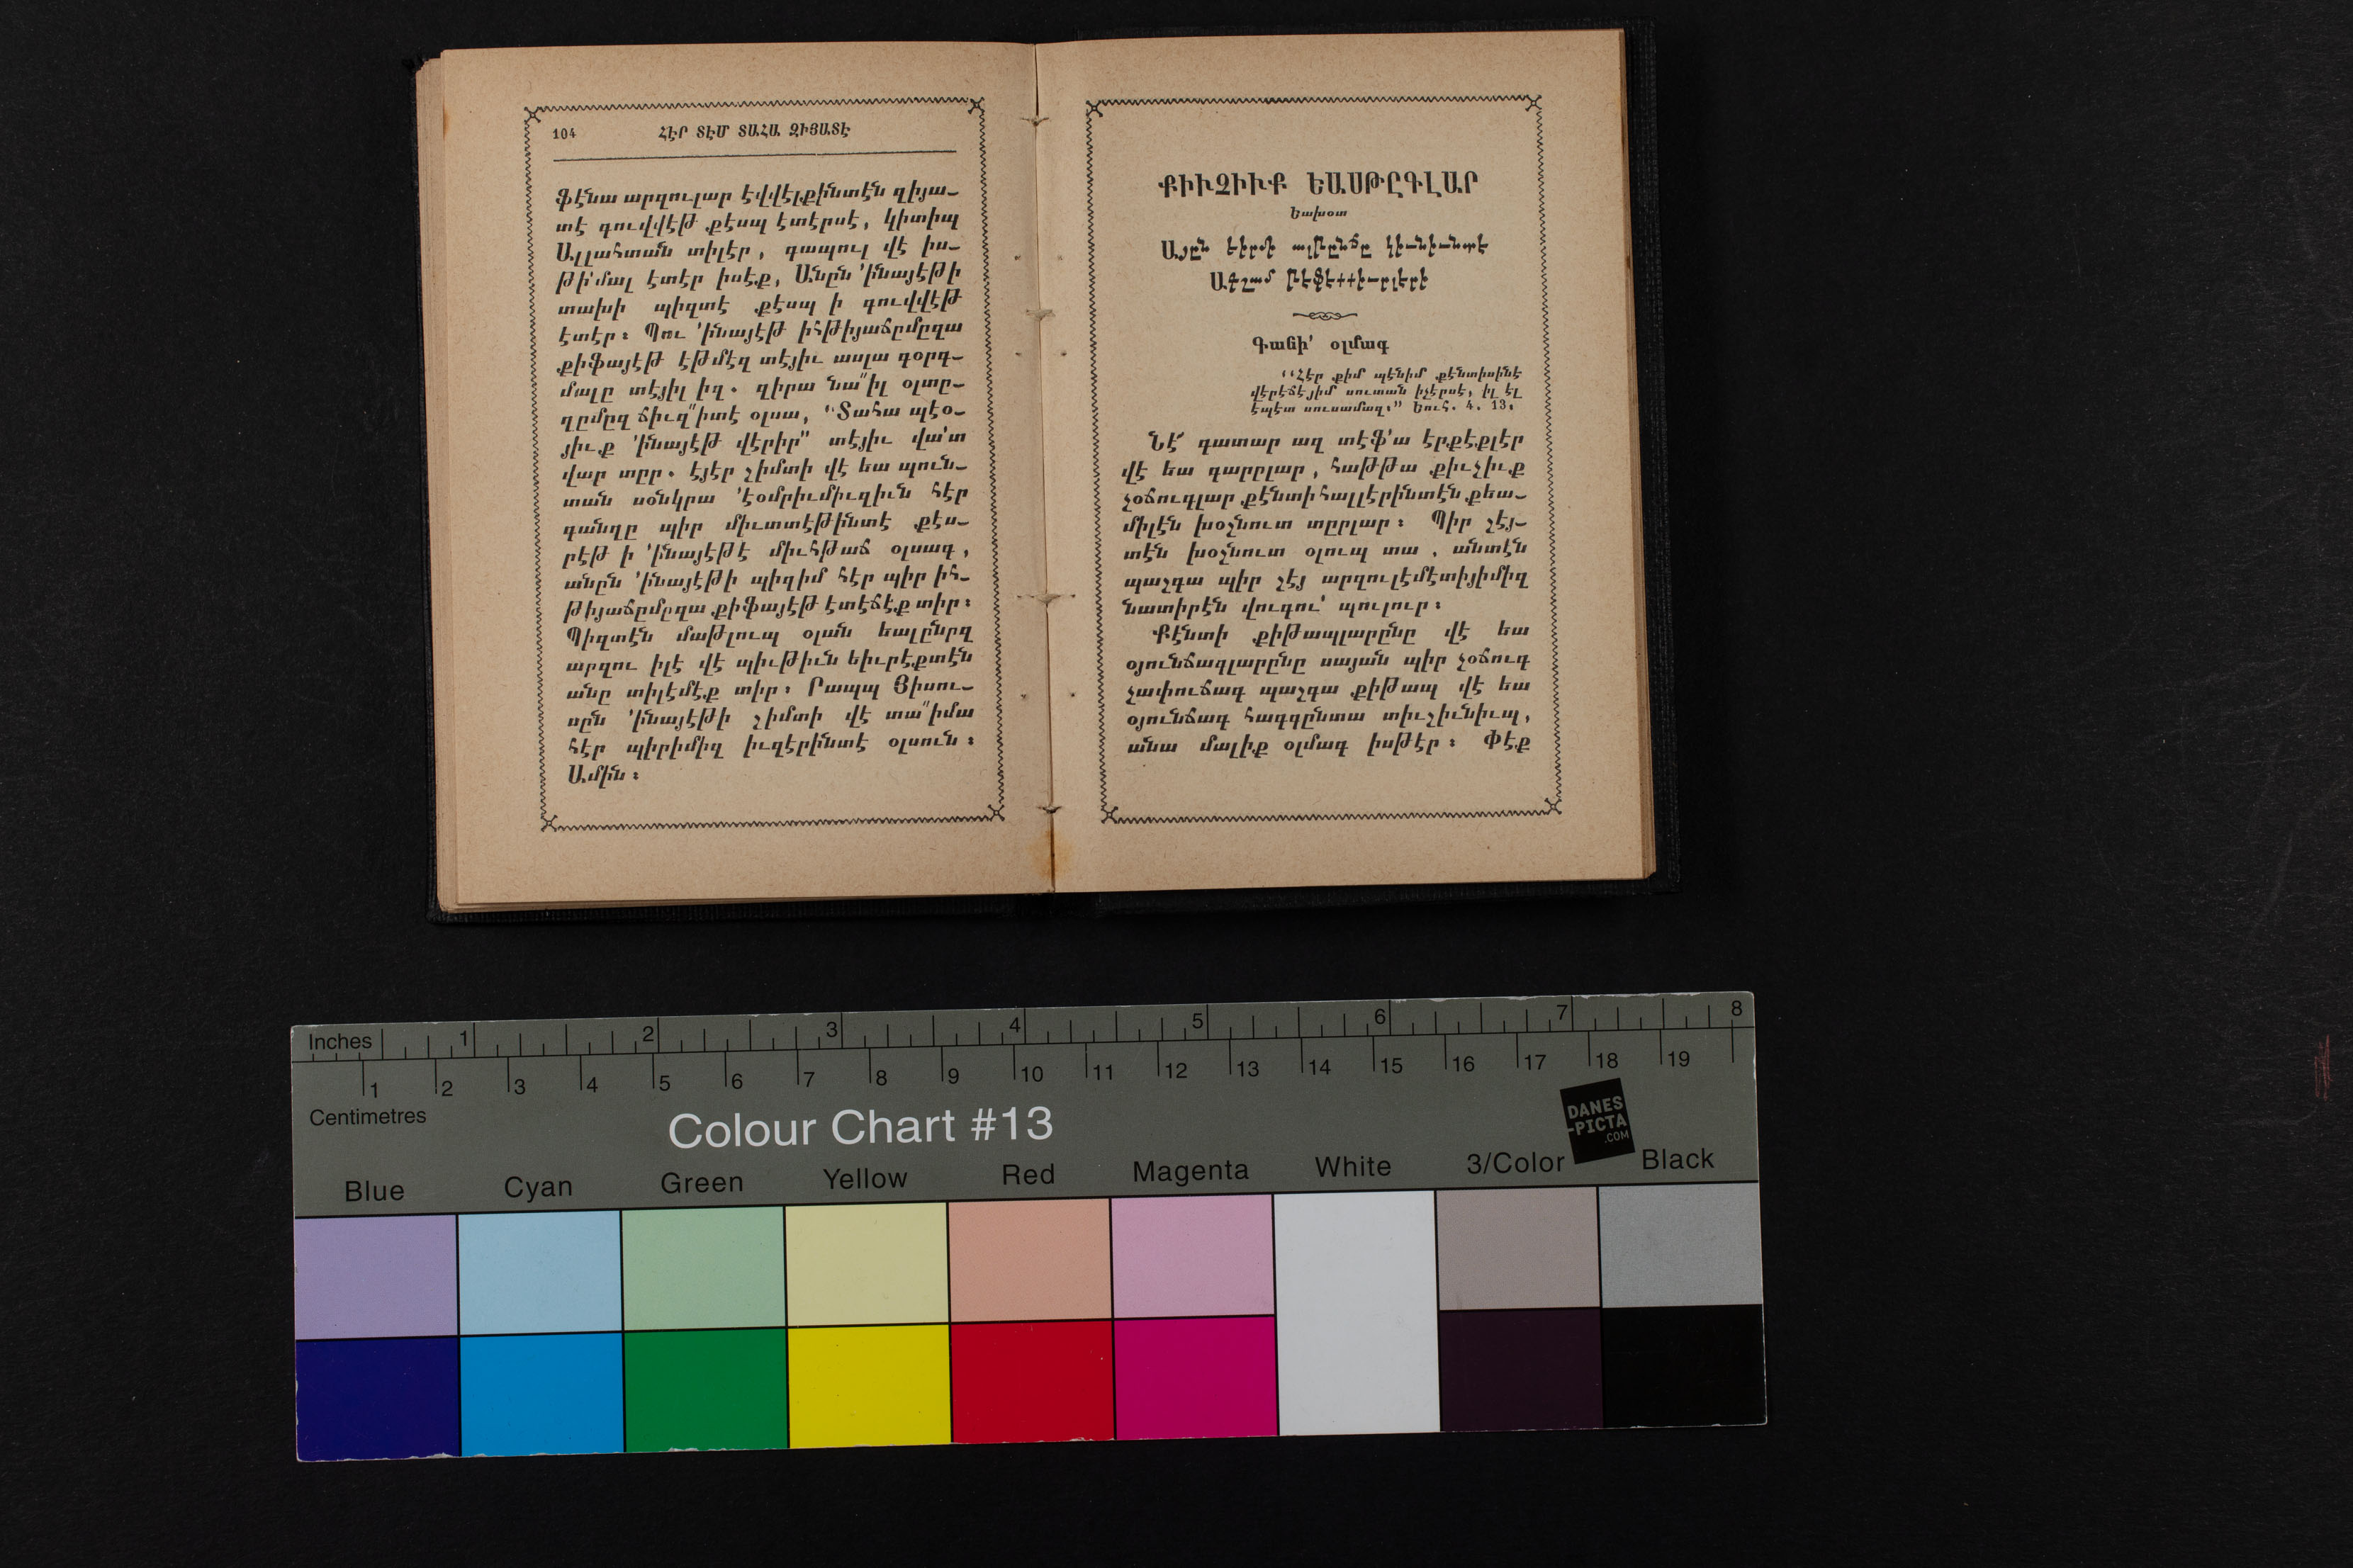 104 ՀԷՐ ՏԷՄ ՏԱՀԱ ԶԻՅԱՏԷ
ֆէնա արզուլար էվվէլքինտէն զիյա–
տէ գուվվէթ քէսպ էտէրսէ, կիտիպ
Ալլահտան տիլէր, գապուլ վէ իս–
թի՛մալ էտէր իսէք, Անըն ՛ինայէթի
տախի պիզտէ քէսպ ի գուվվէթ
էտէր։ Պու ՛ինայէթ իհթիյաճըմըզա
քիֆայէթ էթմէզ տէյիւ ասլա գօրգ–
մալը տէյիլ իզ. զիրա նա՞իլ օլտը–
ղըմըզ ճիւզ՞իտէ օլսա, “Տահա պէօ–
յիւք ՛ինայէթ վէրիր” տէյիւ վա՛տ
վար տըր. էյէր շիմտի վէ եա պուն–
տան սօնկրա ՛էօմրիւմիւզիւն հէր
գանղը պիր միւտտէթինտէ քէս–
րէթ ի ՛ինայէթէ միւհթաճ օլսագ,
անըն ՛ինայէթի պիզիմ հէր պիր իհ–
թիյաճըմըզա քիֆայէթ էտէճէք տիր։
Պիզտէն մաթլուպ օլան եալընըզ
արզու իլէ վէ պիւթիւն եիւրէքտէն
անը տիլէմէք տիր։ Րապպ Յիսու–
սըն ՛ինայէթի շիմտի վէ տա՞իմա
հէր պիրիմիզ իւզէրինտէ օլսուն։
Ամին։
ՔԻՒՉԻՒՔ ԵԱՍԹԸԳԼԱՐ
Եախօտ
Այըն եիրմի ալթընճը կիւնիւնտէ
Ախշամ թէֆէքքիւրլէրի
Գանի՛ օլմագ
“Հէր քիմ պէնիմ քէնտիսինէ
վէրէճէյիմ սուտան իչէրսէ, իլ էլ
էպէտ սուսամազ։” Եուհ. 4. 13.
Նէ՜ գատար ազ տէֆ՛ա էրքէքլէր
վէ եա գարըլար, հաթթա քիւչիւք
չօճուգլար քէնտի հալլէրինտէն քեա–
միլէն խօշնուտ տըրլար։ Պիր շէյ–
տէն խօշնուտ օլուպ տա, անտէն
պաշգա պիր շէյ արզուլէմէտիյիմիզ
նատիրէն վուգու՛ պուլուր։
Քէնտի քիթապլարընը վէ եա
օյունճագլարընը սայան պիր չօճուգ
չափուճագ պաշգա քիթապ վէ եա
օյունճագ հագգընտա տիւշիւնիւպ,
անա մալիք օլմագ իսթէր։ Փէք
Inches 1 2 3 4 5 6 7 8
1 2 3 4 5 6 7 8 9 10 11 12 13 14 15 16 17 18 19
Centimetres
Colour Chart #13
DANES
-PICTA
.COM
Blue Cyan Green Yellow Red Magenta White 3/Color Black